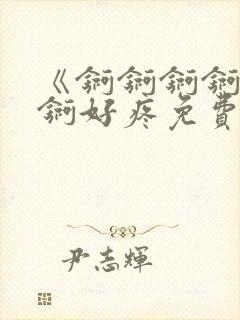 《锕锕锕锕
锕好疼免費
尹志輝